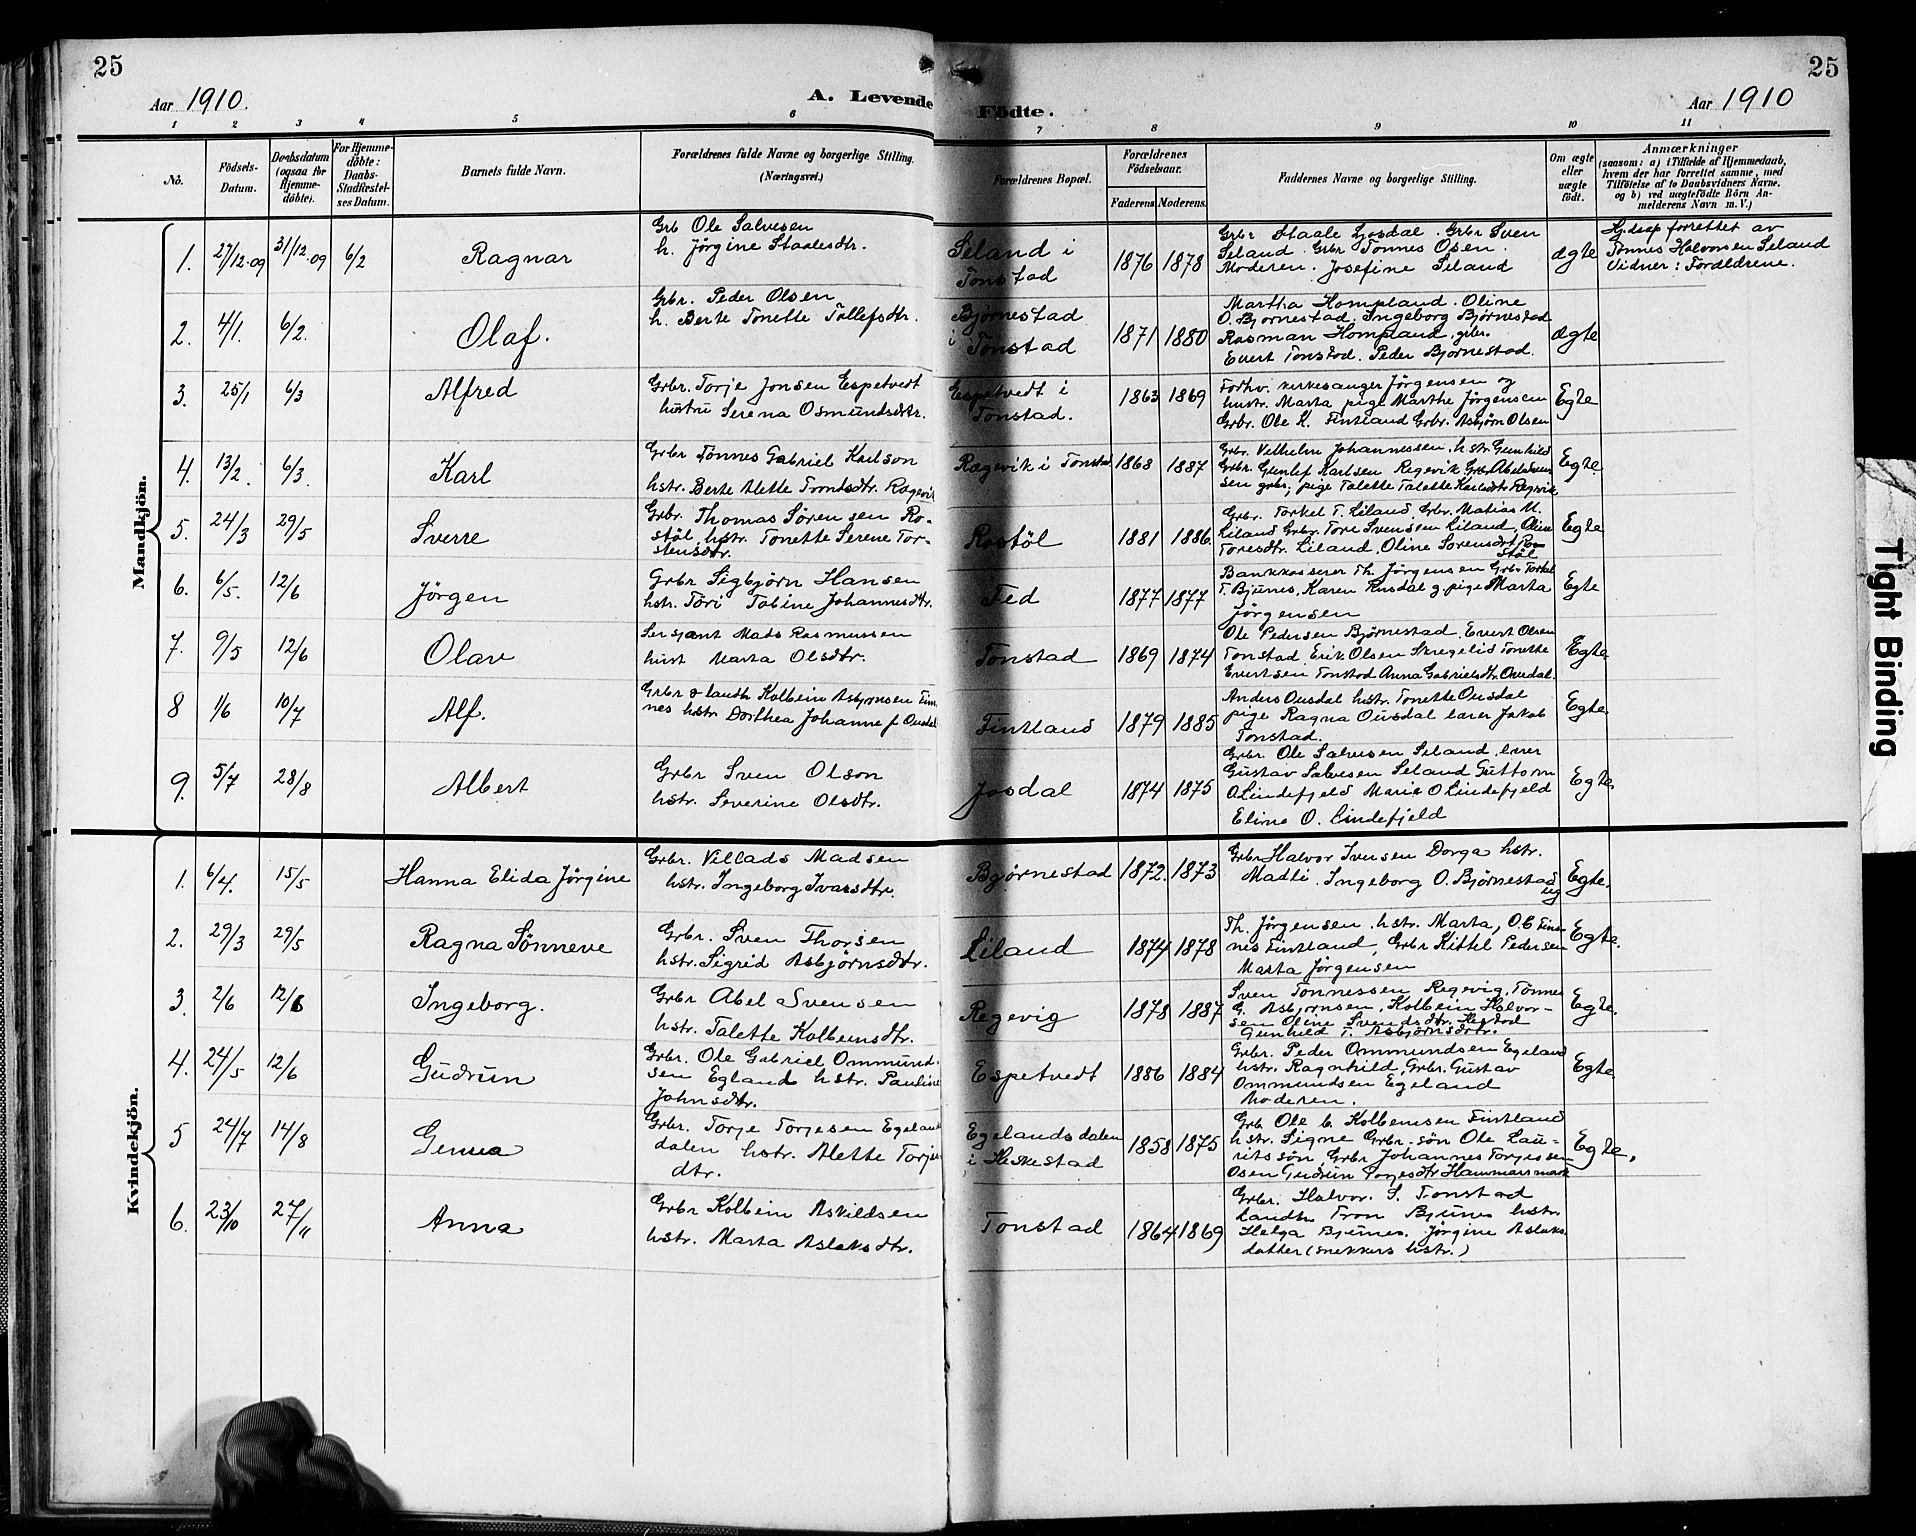 25
25
Aar 1910.
A. Levende
Födte.
Aar 1910
1 2 3 4 5 6 7 8 9 10 11
No.
Födsels-
Datum.
Daabsdatum
(ogsaa for
Hjemme-
döbte).
For Hjemme-
döbte:
Daabs-
Stadfæstel-
ses Datum.
Barnets fulde Navn.
Forældrenes fulde Navne og borgerlige Stilling.
(Næringsvei.)
Forældrenes Bopæl.
Forældrenes
Födselsaar.
Faderens Moderens.
Faddernes Navne og borgerlige Stilling.
Om ægte
eller
uægte
födt.
Anmærkninger
(saasom: a) i Tilfælde af Hjemmedaab,
hvem der har forrettet samme, med
Tilföielse af to Daabsvidners Navne,
og b) ved uægtefödte Börn An-
melderens Navn m. V.)
Mandkjön.
1. 27/12-09 31/12-09 6/2 Ragnar
Grb Ole Salvesen
h. Jörgine Staalesdtr.
Seland i
Tonstad
1876 1878
Grbr Staale Josdal. Grbr Sven
Seland. Grbr Tönnes Osen.
Moderen. Josefine Seland
ægte
Hj.daap forrettet av
Tönnes Halvorsen Seland
Vidner: Forældrene.
2. 4/1. 6/2. Olaf.
Grbr. Peder Olsen
h. Berte Tonette Tallefsdtr.
Bjørnestad
i Tonstad
1871 1880
Martha Hompland. Oline
O. Bjørnestad. Ingeborg Bjørnestad
Rasman Hompland, grbr.
Evert Tonstad. Peder Bjornestad.
ægte
3. 25/1 6/3 Alfred
Grbr. Torje Jonsen Espetvedt
hustru Serena Osmundsdtr.
Espetvedt i
Tonstad.
1863 1869
Forhv. kirkesanger Jörgensen og
hustr. Marta pige Marthe Jörgensen
Grbr. Ole K. Fintland Grbr. Asbjörn Olsen
Egte
4. 13/2. 6/3. Karl
Grbr Tönnes Gabriel Karlson
hstr. Berte Alette Trondsdtr. Ragevik
Ragevik i Tonstad
1868 1887
Grbr. Vilhelm Johannessen, hstr Gunhild
Grbr. Gunlef Karlsen Regevik Grbr Abel Sven
sen grbr, pige Talette Talette Karlsdtr Regvik
Egte
5. 24/3 29/5 Sverre
Grbr. Thomas Sören sen Ro-
stöl, hstr. Tonette Serene Tor-
stensdtr.
Rostöl
1881 1886
Grbr. Torkel T. Liland Grbr. Matias M.
Liland Grbr. Tore Svensen Liland, Oline
Toresdtr. Liland, Oline Sorensdtr Ro-
stöl
Egte
6. 6/5. 12/6 Jörgen
Grbr Sigbjörn Hansen
hstr. Töri Tobine Johannesdtr.
Fed
1877 1877
Bankkasserer Th. Jörgensen Grbr Torkel
T. Bjunes, Karen Rusdal g. pige Marta
Jörgensen
Egte
7. 9/5 12/6 Olav
Sersjant Mads Rasmussen
hust Marta Olsdtr.
Tonstad
1869 1874
Ole Pedersen Bjørnestad. Evert Olsen
Tonstad Erik Olsen Skregelid Tonette
Evertsen Tonstad Anna Gabrielsdtr Ousdal.
Egte
8 1/6 10/7 Alf.
Grbr & landh Kolbein Asbjornsen Fin
nes hstr Dorthea Johanne f. Ousdal
Fintland
1879 1885
Anders Ousdal hstr. Tonette Ousdal
pige Ragna Ousdal lærer Jakob
Tonstad.
Egte
9. 5/7 28/8 Albert
Grbr Sven Olson
hstr. Severine Olsdtr.
Josdal
1874 1875
Grbr. Ole Salvesen Seland. lærer
Gustav Salvesen Seland Guttorm
O Lindefjeld Marie O Lindefjeld
Eline O. Lindefjeld
Egte.
Kvindekjön.
1. 6/4. 15/5 Hanna Elida Jörgine
Grbr. Villads Madsen
hstr. Ingeborg Ivarsdtr.
Bjørnestad
1872. 1873
Grbr Halvor Iversen Dorga hstr.
Madli. Ingeborg O. Bjørnestad
ug
Egte.
2. 29/3 29/5 Ragna Sönneve
Grbr. Sven Thorsen
hstr. Sigrid Asbjörnsdtr.
Liland
1874 1878
Th. Jörgensen. hstr. Marta, O. C Fin-
nes Fintland, Grbr Kittel Pedersen
Marta Jörgensen
Egte.
3. 2/6 12/6 Ingeborg.
Grbr Abel Svensen
hstr. Talette Kolbeinsdtr.
Regevig
1878 1887
Sven Tonnessen Regevig, Tönnes
G. Asbjornsen, Kolbein Halvor-
sen Oline Svendsdtr. Hestad
Gunhild T. Asbjörnsdtr.
Egte.
4. 24/5 12/6 Gudrun
Grbr. Ole Gabriel Ommund-
sen Egland hstr. Pauline
Johnsdtr.
Espetvedt
1886 1884
Grbr. Peder Ommundsen Egeland
hstr. Ragnhild, Grbr. Gustav
Ommundsen Egeland
Moderen.
Egte
5 24/7 14/8
Grbr. Torje Torjesen Egeland
dalen hstr. Alette Torje
dtr.
Egelandsdalen
i Heskestad
1858 1875
Grb Ole C. Kolbeinsen Fintland
hstr. Signe Grbr. sön Ole Lau-
ritssön, Grbr Johannes Torjessen
Osen Gudrun Torjesdtr Hammarsmark
Egte.
6. 23/10 27/11 Anna
Grbr Kolbein Askildsen
hstr. Marta Aslaksdtr.
Tonstad
1864 1869
Grbr. Halvor. S. Tonstad
Landh. Tron Bjunes hstr.
Helga Bjunes. Jörgine Aslaks
datter (snekkers hstr.)
Tight Binding